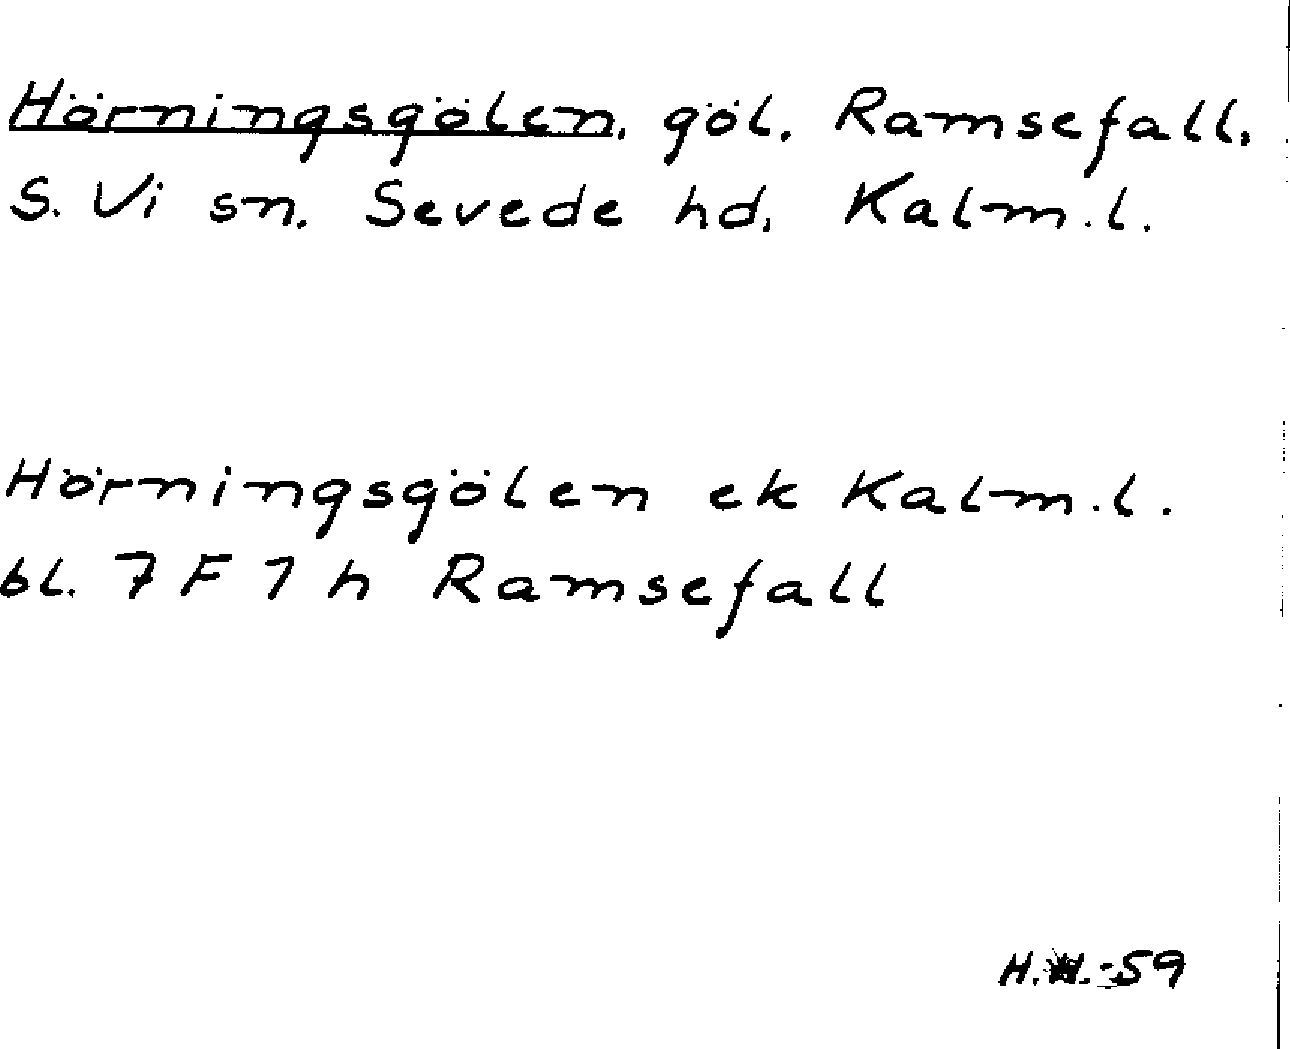 Hörningsgölen, göl. Ramsefall,
S. Vi sn. Sevede hd, Kalm.l.
Hörningsgölen ek Kalm.l.
bl. 7 F 1 h Ramsefall
-59